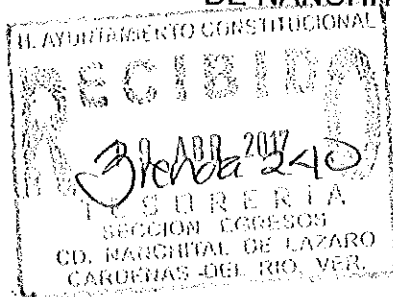 DE NANCHI
H. AYUNTAMIENTO CONSTITUCIONAL
RECIBIDO
ABR. 2017
Brenda 240
TESORERIA
SECCION EGRESOS
CD. NANCHITAL DE LAZARO
CARDENAS DEL RIO, VER.